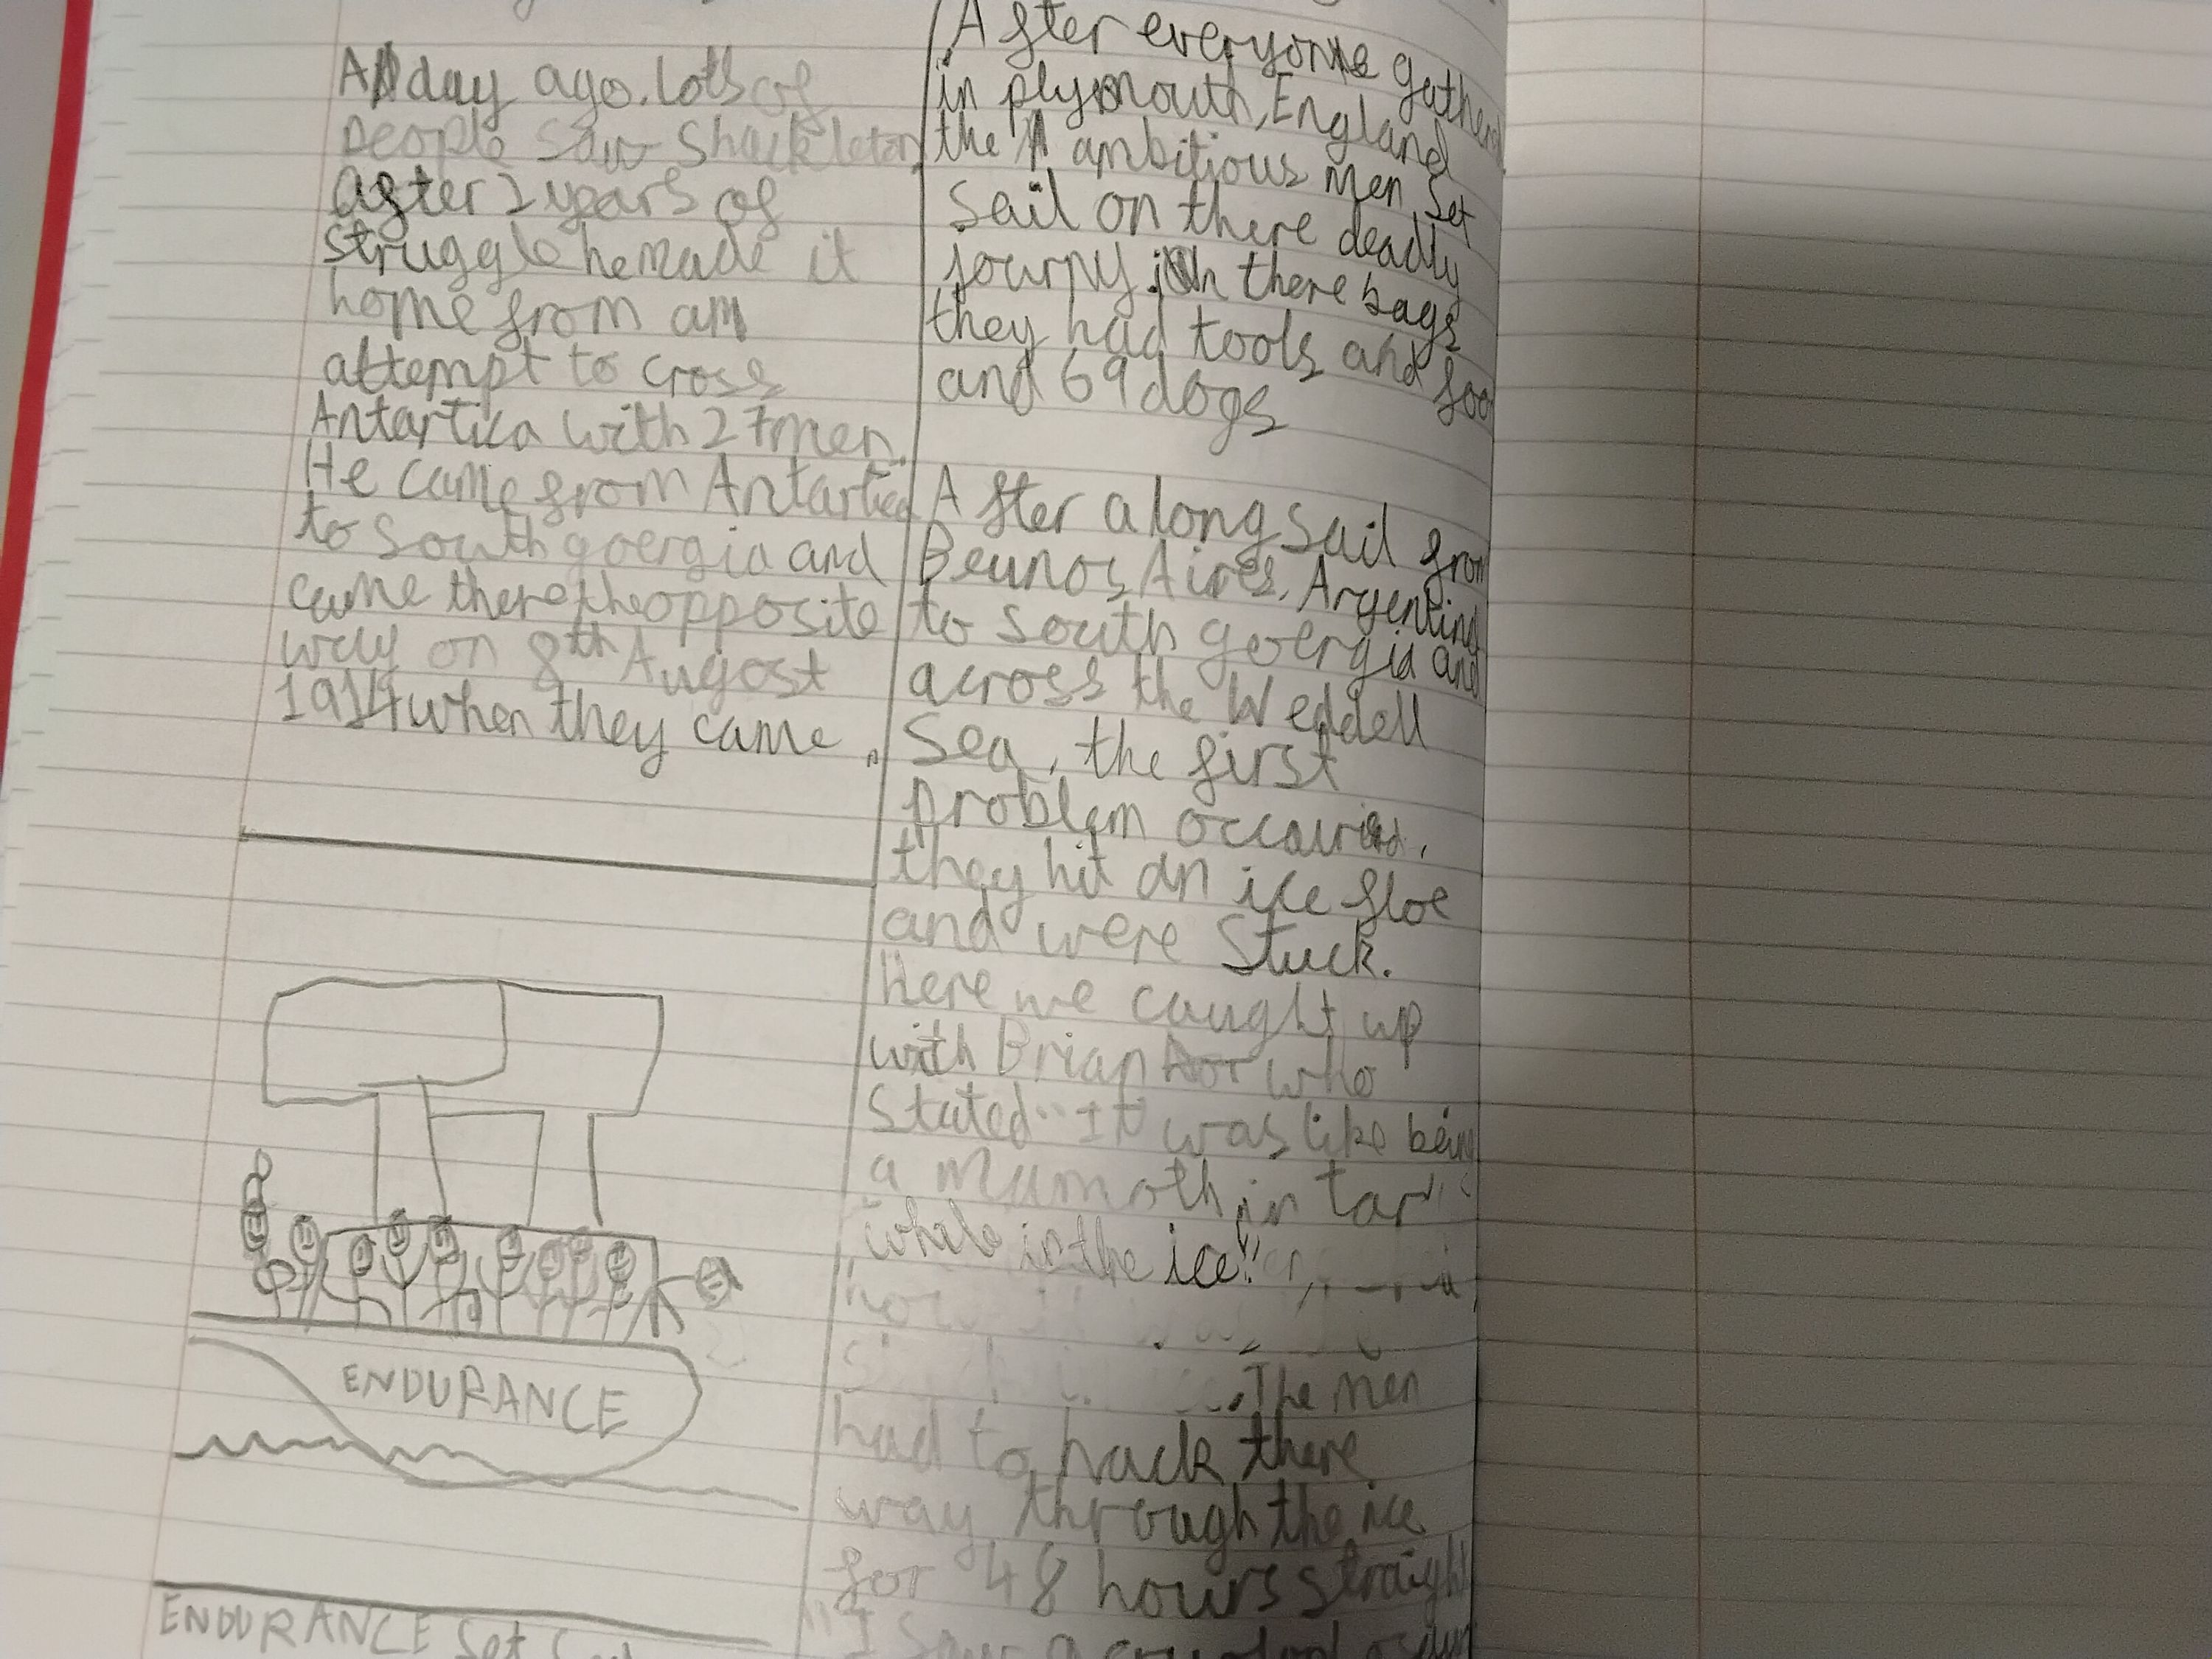 A day ago. lots of
people saw Shackleton
after 2 years of
struggle he made it
home from an
attempt to cross
Antartica with 27 men.
He came from Antartica
to South goergia and
came there the opposite
way on 8th Augost
1914 when they came.
ENDURANCE
ENDURANCE Set
After everyone gathered
in plymouth, England
the ambitious men set
sail on there deadly
journy. in there bags
they had tools and foo
and 69 dogs
After a long sail from
Beunos Aires, Argentina
to South goergia and
across the Weddell
Sea, the first
problem occawrd,
they hit an ice floe
and were Stuck.
Here we caught up
with Brian who
stated "It was like being
a Mamoth in tar
while in the ice!"
The men
had to hack there
way through the ice
for 48 hours straight
"I saw a